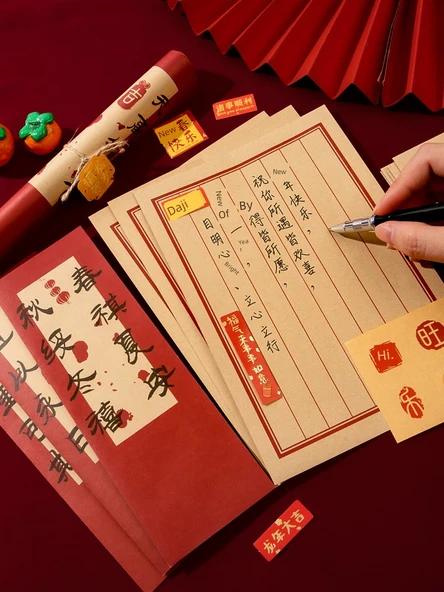 吉
New春
快乐
诸事顺利
Daji
New
年快乐，
祝你所遇皆欢喜，
By
得皆所愿，
Of
一
Year，
、立心立行
New
目明心
事事如意
春祺夏安
秋绥冬禧
Hi.
旺
乐
龙年大吉